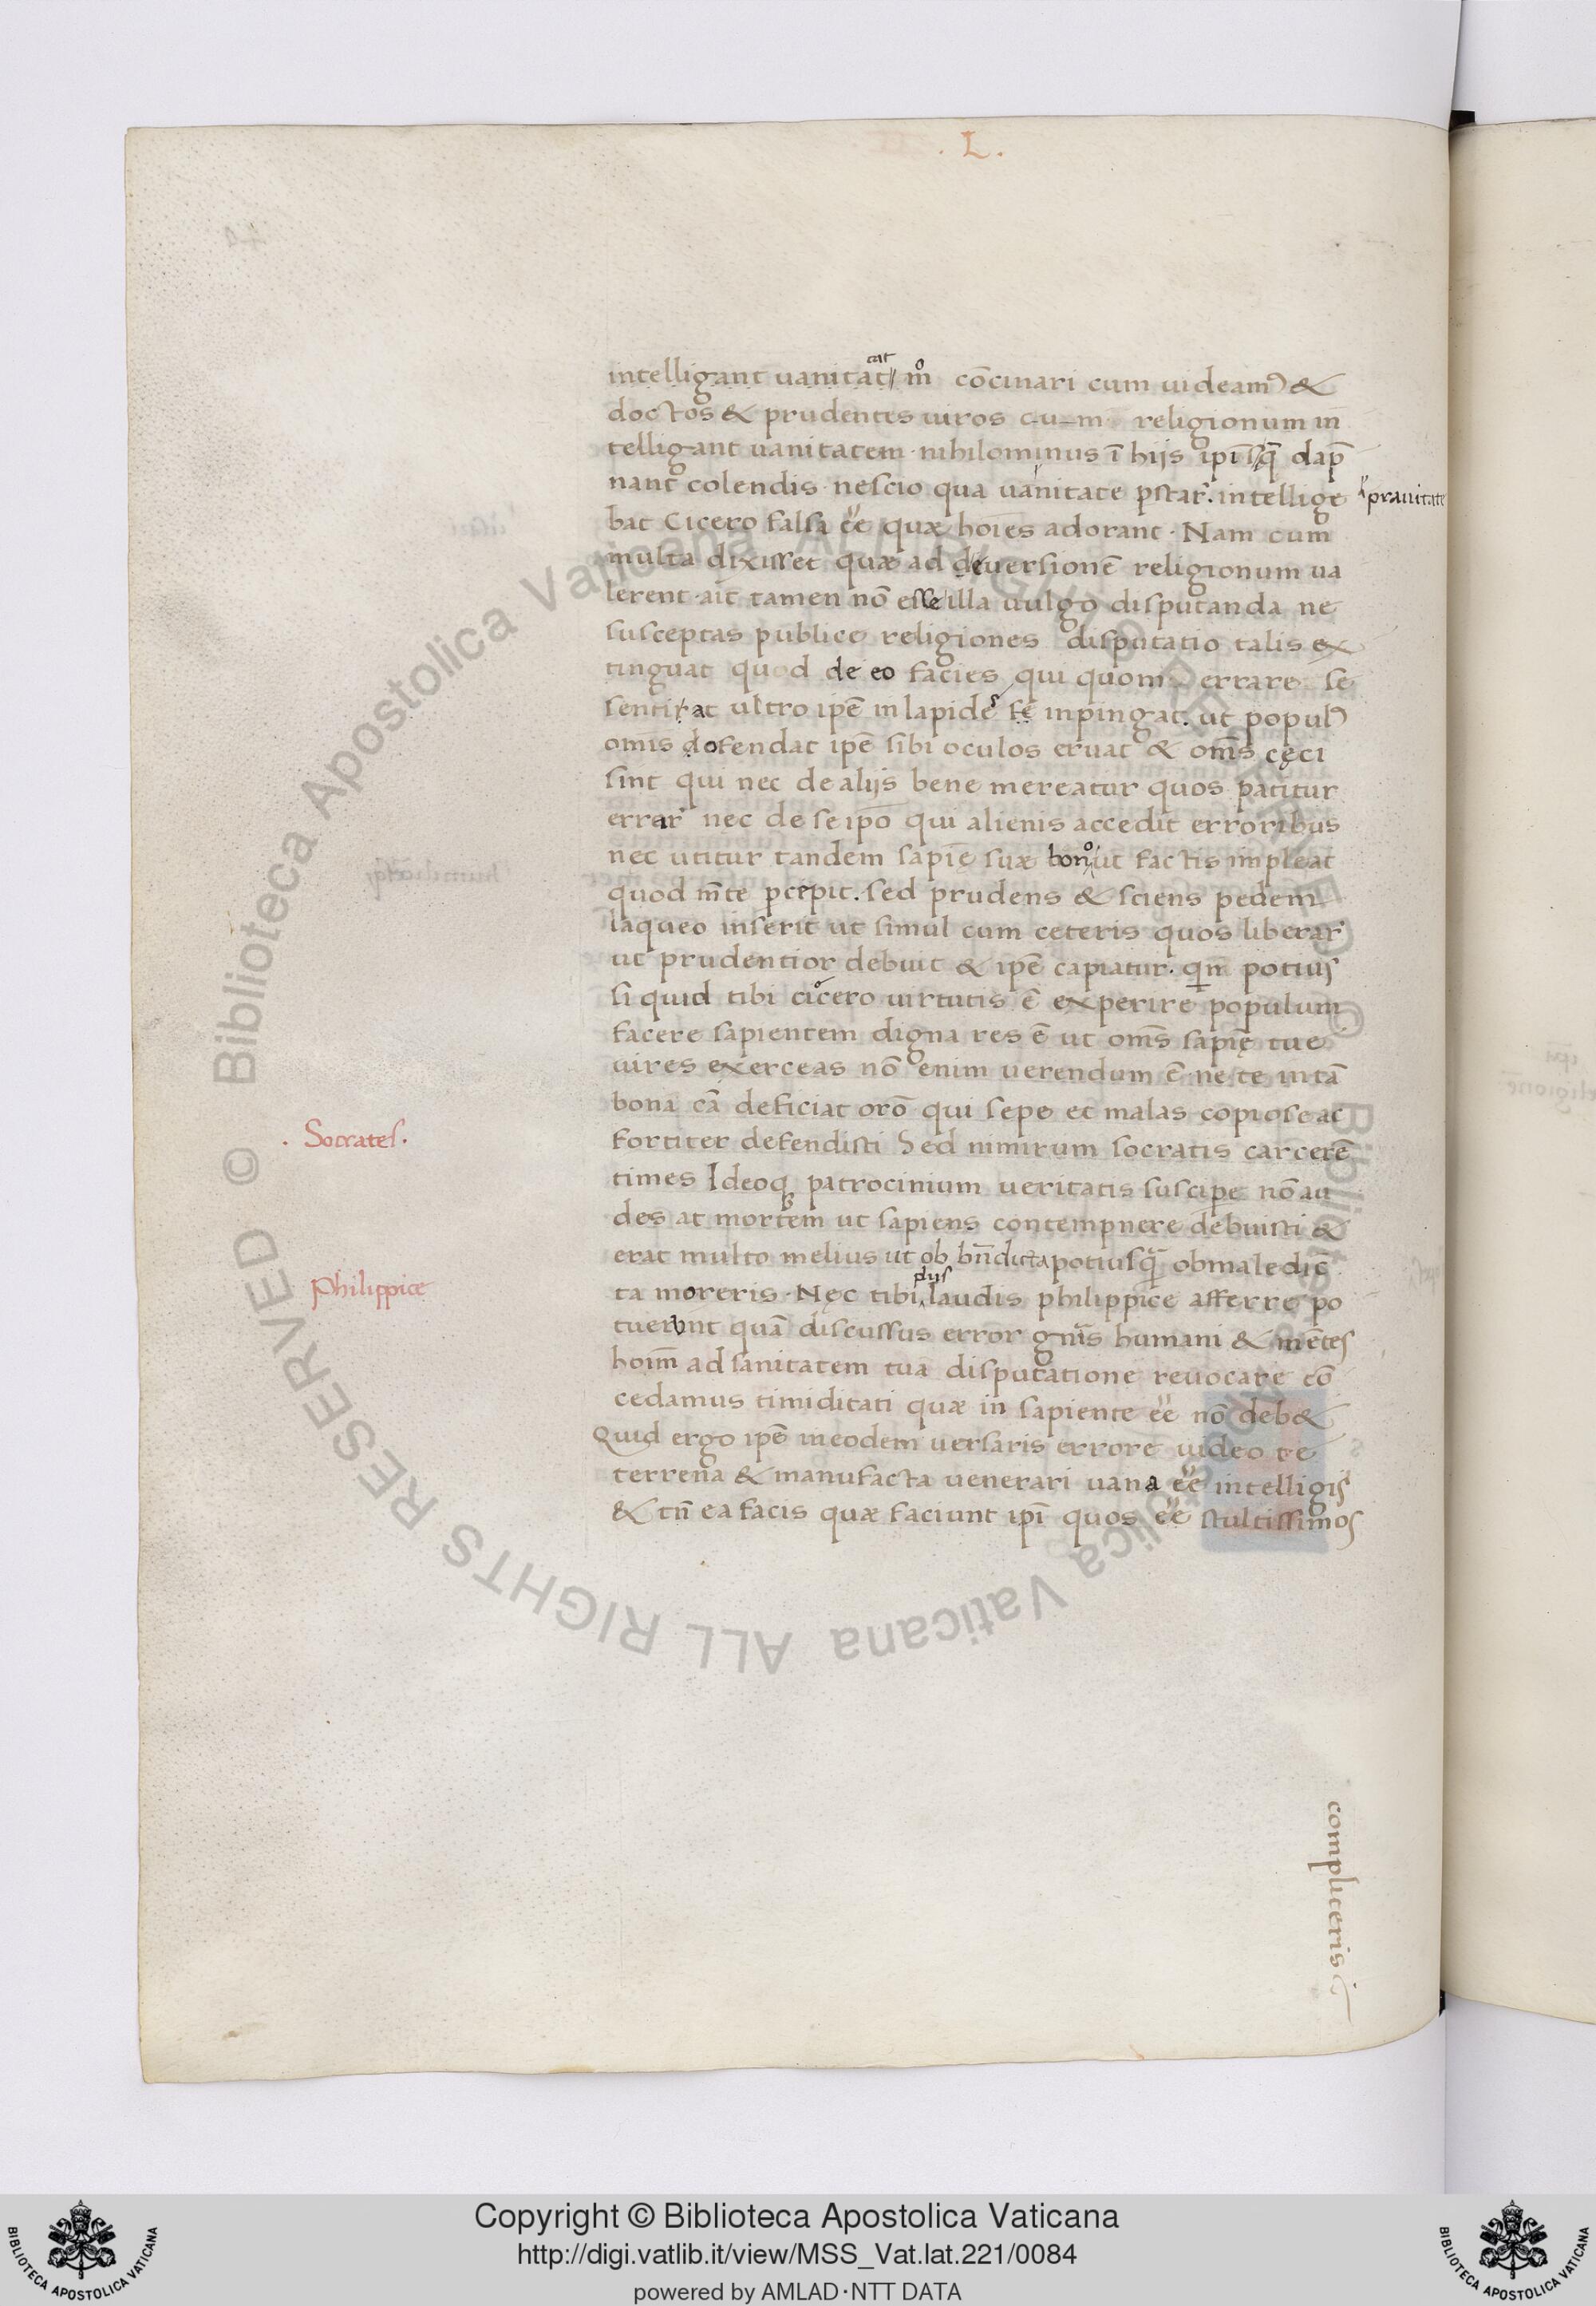 . L .
intelligant uanitat cat m̊ cōcinari cum uideamꝰ &
doctos & prudentes uiros cum religionum in
telligant uanitatem · nihilominus ī hijs ip̄is q̄ dap̄
nant colendis · nescio qua uanitate p̄star̄ . intellige
prauitate
bat Cicero falsa ēē quæ hoīes adorant · Nam cum
multa dixisset quæ ad deuersionē religionum ua
lerent · ait tamen nō esse illa uulgo disputanda ne
susceptas publice religiones disputatio talis ex
tinguat quod de eo facies qui quom errare se
sentiat ultro ipē in lapides se inpingat . ut populꝰ
omis ofendat ipē sibi oculos eruat & om̄s cęci
sint qui nec de alijs bene mereatur quos patitur
errar̄ nec de se ip̄o qui alienis accedit erroribus
nec utitur tandem sapiē suæ bono ut factis impleat
quod m̄te p̄cepit . sed prudens & sciens pedem
laqueo inserit ut simul cum ceteris quos liberar̄
ut prudentior debuit & ipē capiatur · qn̄ potius
si quid tibi cicero uirtutis ē experire populum
facere sapientem digna res ē ut om̄s sapię tue
uires exerceas nō enim uerendum ē · ne te in tā
bona cā deficiat orō qui sepe et malas copiose ac
. Socrates .
fortiter defendisti Sed nimirum socratis carcerē
times Ideoqꝫ patrocinium ueritatis suscipe nō au
des at mortem ut sapiens contempnere debuisti &
erat multo melius ut ob bn̄dicta potiusq̄ ob maledic̄
Philippice
ta moreris · Nęc tibi plus laudis philippice afferre po
tuerunt quā discussus error gn̄is humani & mētes
hoīm ad sanitatem tua disputatione reuocate cō
cedamus timiditati quæ in sapiente ēē nō deb&
Quid ergo ipē in eodem uersaris errore uideo te
terrena & manufacta uenerari uana ēē intelligis
& tn̄ ea facis quæ faciunt ip̄i quos ēē stultissimos
compliceris
© Biblioteca Apostolica Vaticana ALL RIGHTS RESERVED
Copyright © Biblioteca Apostolica Vaticana
http://digi.vatlib.it/view/MSS_Vat.lat.221/0084
powered by AMLAD·NTT DATA
BIBLIOTECA APOSTOLICA VATICANA
BIBLIOTECA APOSTOLICA VATICANA